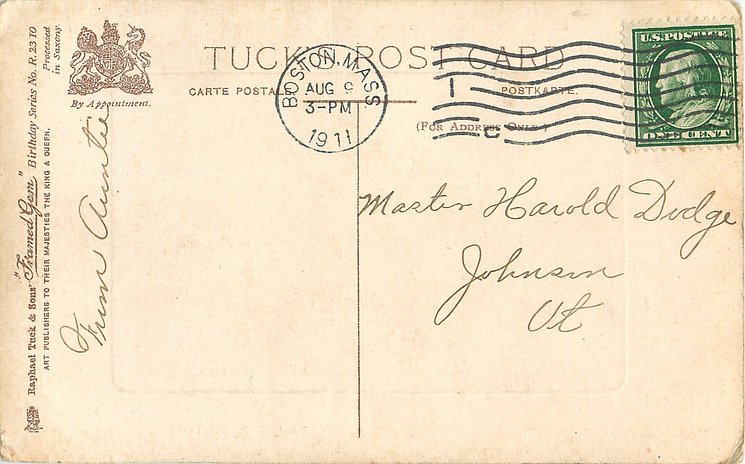 TUCK'S POST CARD
CARTE POSTALE.
POSTKARTE.
(For Address Only.)
BOSTON, MASS
AUG 9
3-PM
1911
1
C
U.S. POSTAGE
ONE CENT
By Appointment.
Raphael Tuck & Sons' "Framed Gem" Birthday Series No. R. 2310
ART PUBLISHERS TO THEIR MAJESTIES THE KING & QUEEN.
Processed
in Saxony.
From Auntie
Master Harold Dodge
Johnson
Vt